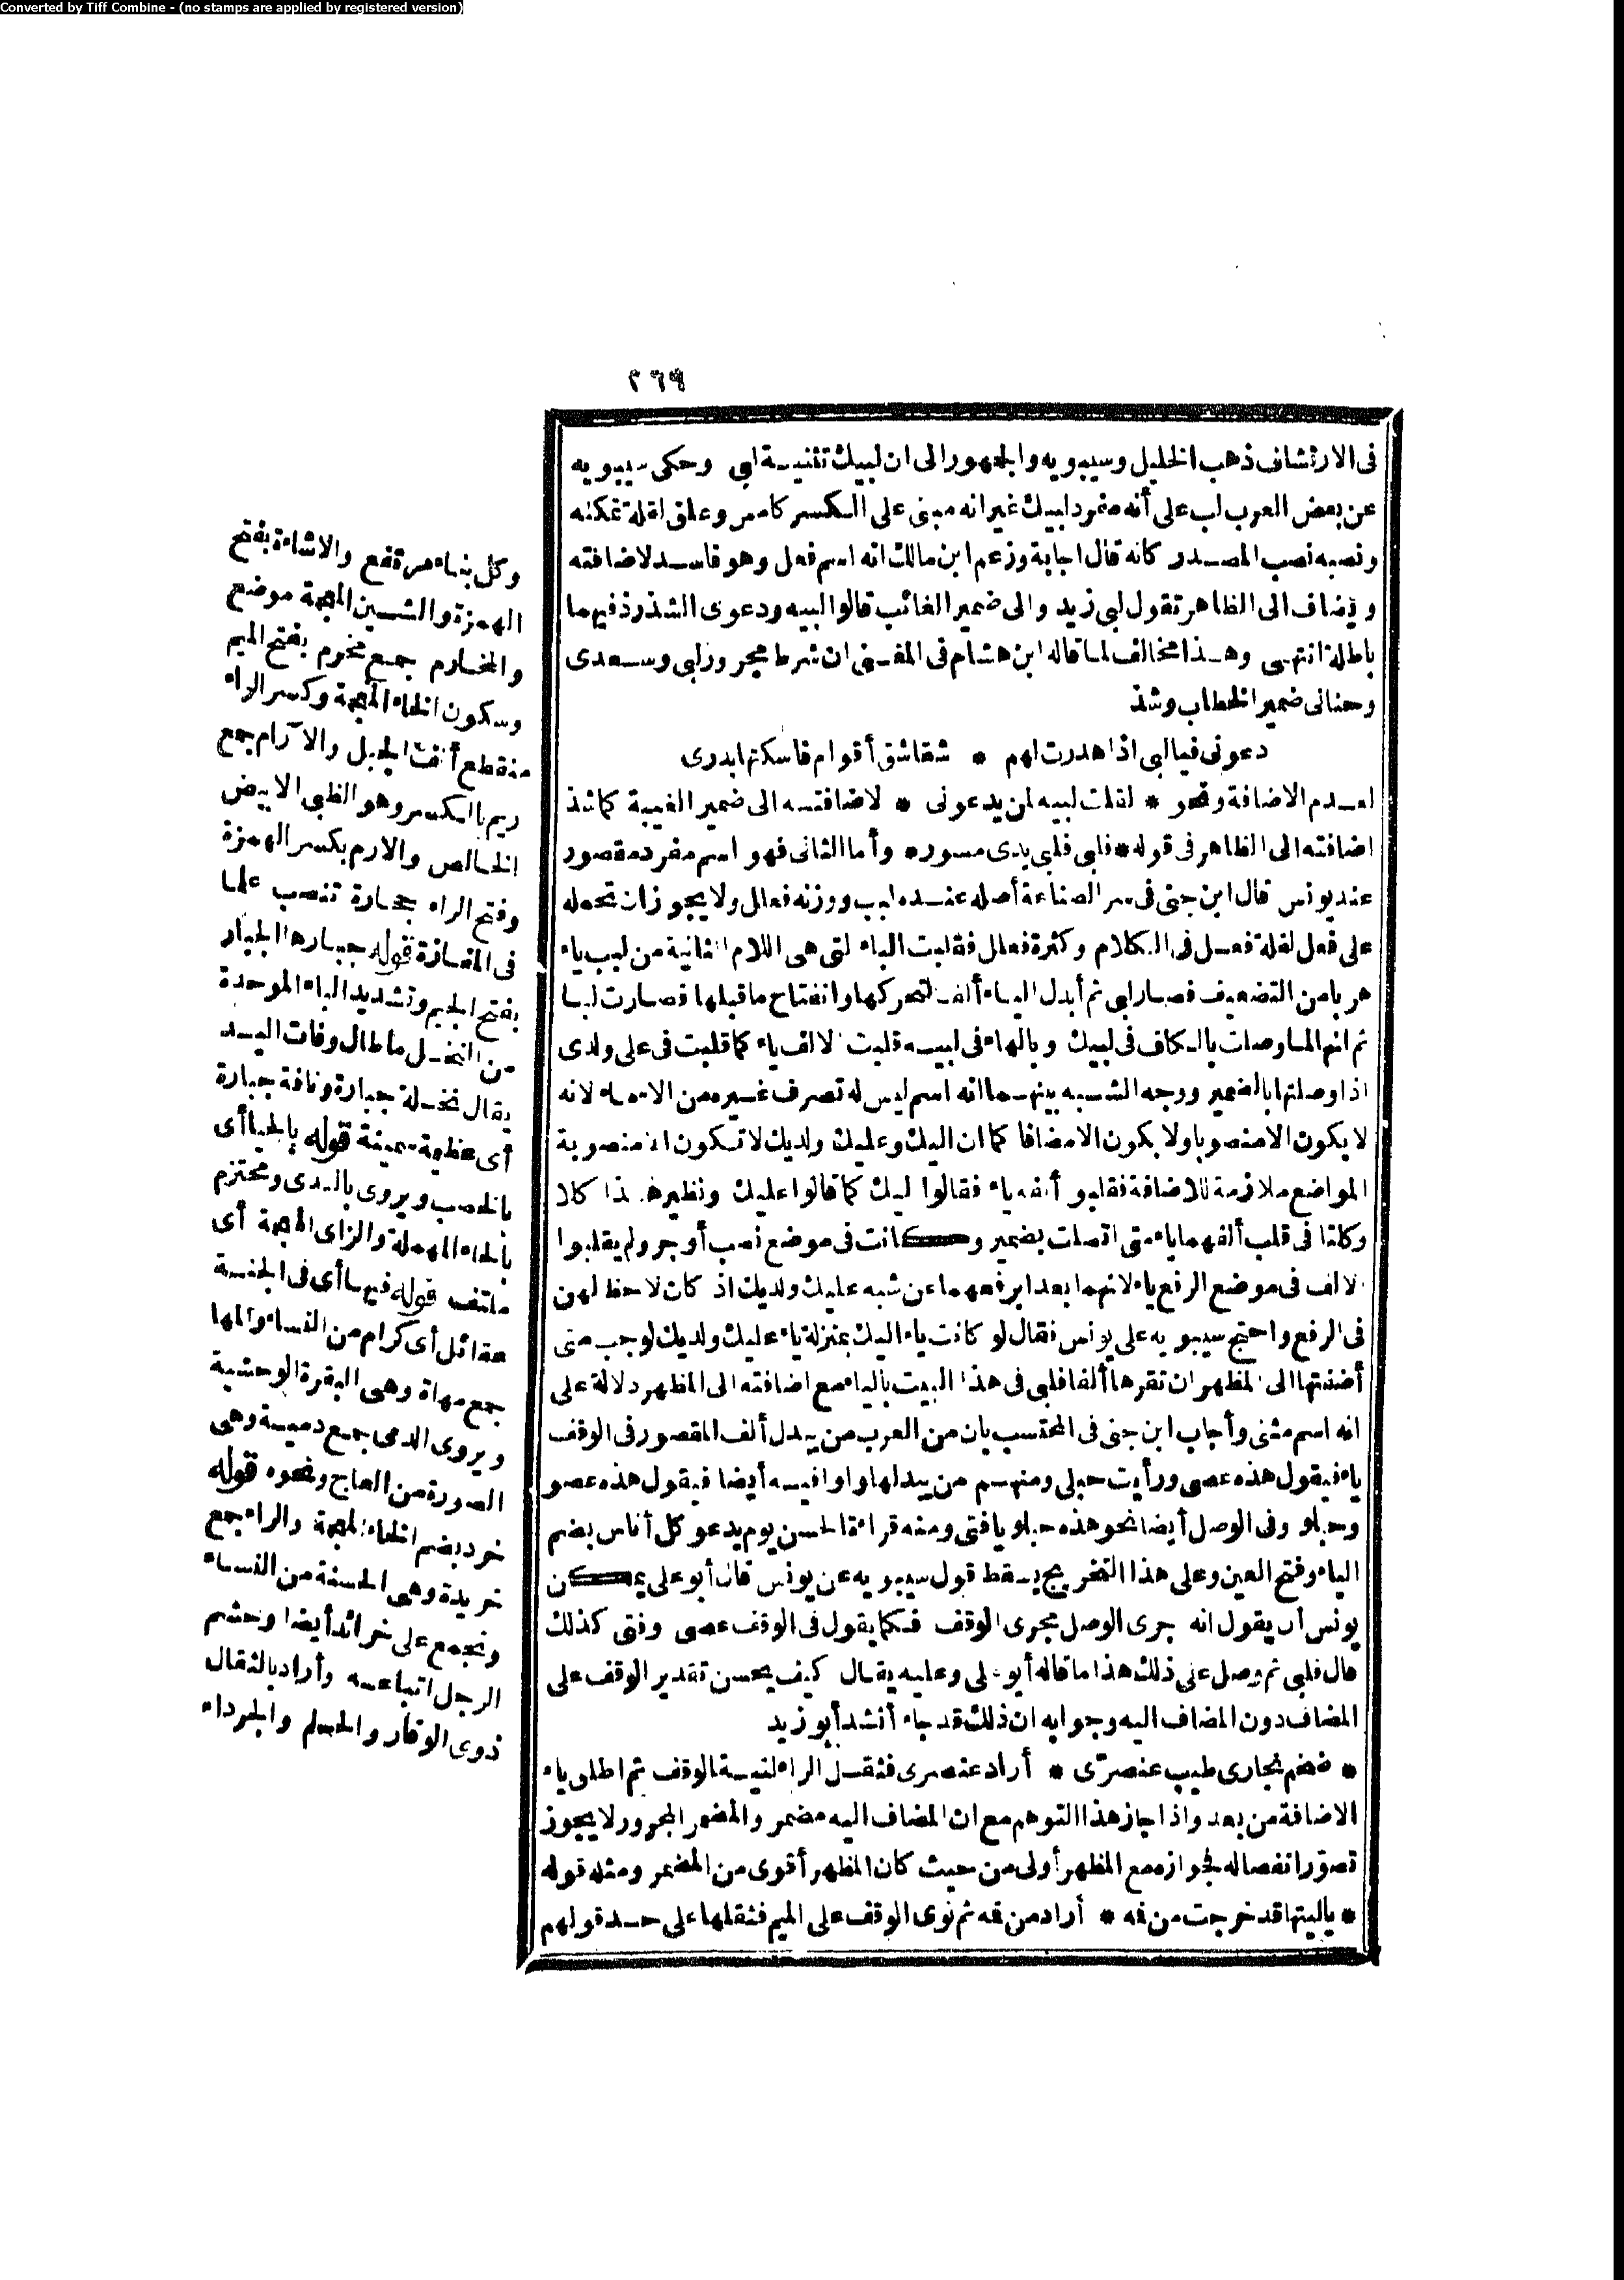 Converted by Tiff Combine - (no stamps are applied by registered version)
٢٦٩
فى الارتشاف ذهب الخليل وسيبويه والجمهور الى ان لبيك تثنية لبى وحكى سيبويه
عن بعض العرب لب على أنه مفرد لبيك غير انه مبنى على الكسر كامس وعاق لقلة تمكنه
ونصبه نصب المصدر كانه قال اجابة وزعم ابن مالك انه اسم فعل وهو فاسد لاضافته
ويضاف الى الظاهر تقول لبى زيد والى ضمير الغائب قالوا لبيه ودعوى الشذوذ فيهما
باطلة انتهى وهذا مخالف لما قاله ابن هشام فى المغنى ان شرط مجرور لبى وسعدى
وحنانى ضمير الخطاب وشذ
دعونى فيالبى اذا هدرت لهم * شقاشق أقوام فاسكتها هدرى
لعدم الاضافة ونحو * لقلت لبيه لمن يدعونى * لاضافته الى ضمير الغيبة كما شذ
اضافته الى الظاهر فى قوله * فلبى فلبى يدى مسور * وأما الثانى فهو اسم مفرد مقصور
عند يونس قال ابن جنى فى سر الصناعة أصله عنده لبب ووزنه فعلل ولا يجوز ان تحمله
على فعل لقلة فعل فى الكلام وكثرة فعلل فقلبت الباء لتى هى اللام الثانية من لبب ياء
هربا من التضعيف فصار لبى ثم أبدل الياء ألفا لتحركها وانفتاح ما قبلها فصارت لبا
ثم انه لما وصلت بالكاف فى لبيك وبالهاء فى لبيه قلبت الالف ياء كما قلبت فى على ولدى
اذا وصلتها بالضمير ووجه الشبه بينهما انه اسم ليس له تصرف غيره من الاسماء لانه
لا يكون الا منصوبا ولا يكون الا مضافا كما ان اليك وعليك ولديك لا تكون الا منصوبة
المواضع ملازمة للاضافة فقلبوا ألفه ياء فقالوا لبيك كما قالوا عليك ونظير هذا كلا
وكلتا فى قلب ألفهما ياء متى اتصلت بضمير وكانت فى موضع نصب أو جر ولم يقلبوا
الالف فى موضع الرفع ياء لانهما بعدا برفعهما عن شبه عليك ولديك اذ كان لا حظ لهن
فى الرفع واحتج سيبويه على يونس فقال لو كانت ياء لبيك بمنزلة ياء عليك ولديك لوجب متى
أضفتها الى المظهر ان تقرها ألفا فلبى فى هذا البيت بالياء مع اضافته الى المظهر دلالة على
انه اسم مثنى وأجاب ابن جنى فى المحتسب بان من العرب من يبدل ألف المقصور فى الوقف
ياء فيقول هذه عصى ورأيت حبلى ومنهم من يبدلها واوا فيه أيضا فيقول هذه عصو
وحبلو وفى الوصل أيضا نحو هذه حبلو يا فتى ومنه قراءة الحسن يوم يدعو كل أناس بضم
الياء وفتح العين وعلى هذا التخريج يسقط قول سيبويه عن يونس قال أبو على يمكن
يونس أن يقول انه جرى الوصل مجرى الوقف فكما يقول فى الوقف عصى وفتى كذلك
قال فلبى ثم وصل على ذلك هذا ما قاله أبو على وعليه يقال كيف يحسن تقدير الوقف على
المضاف دون المضاف اليه وجوابه ان ذلك قد جاء أنشد أبو زيد
* ضخم نجارى طيب عنصرّى * أراد عنصرى فثقل الراء لنية الوقف ثم اطلق ياء
الاضافة من بعد واذا جاز هذا التوهم مع ان المضاف اليه مضمر والمضمر المجرور لا يجوز
تصوّر انفصاله فجوازه مع المظهر أولى من حيث كان المظهر أقوى من المضمر ومثله قوله
* ياليتها قد خرجت من فه * أراد من فه ثم نوى الوقف على الميم فثقلها على حد قولهم
وكل بناء مرتفع والاشاءة بفتح
الهمزة والشين المعجمة موضع
والمخارم جمع مخرم بفتح الميم
وسكون الخاء المعجمة وكسر الراء
منقطع أنف الجبل والآرام جمع
ريم بالكسر وهو الظبى الابيض
الخالص والارم بكسر الهمزة
وفتح الراء حجارة تنصب علما
فى المفازة قوله جبارها الجبار
بفتح الجيم وتشديد الباء الموحدة
من النخل ما طال وفات اليد
يقال نخلة جبارة وناقة جبارة
أى عظيمة سمينة قوله بالحيا أى
بالخصب ويروى بالندى ومحتزم
بالحاء المهملة والزاى المعجمة أى
ملتف قوله فيها أى فى الجنسة
عقائل أى كرام من النساء والمها
جمع مهاة وهى البقرة الوحشية
ويروى الدمى جمع دمية وهى
الصورة من العاج ونحوه قوله
خرد بضم الخاء المعجمة والراء جمع
خريدة وهى الحسنة من النساء
وتجمع على خرائد أيضا وحشم
الرجل اتباعه وأراد بالثقال
ذوى الوقار والحلم والجرداء